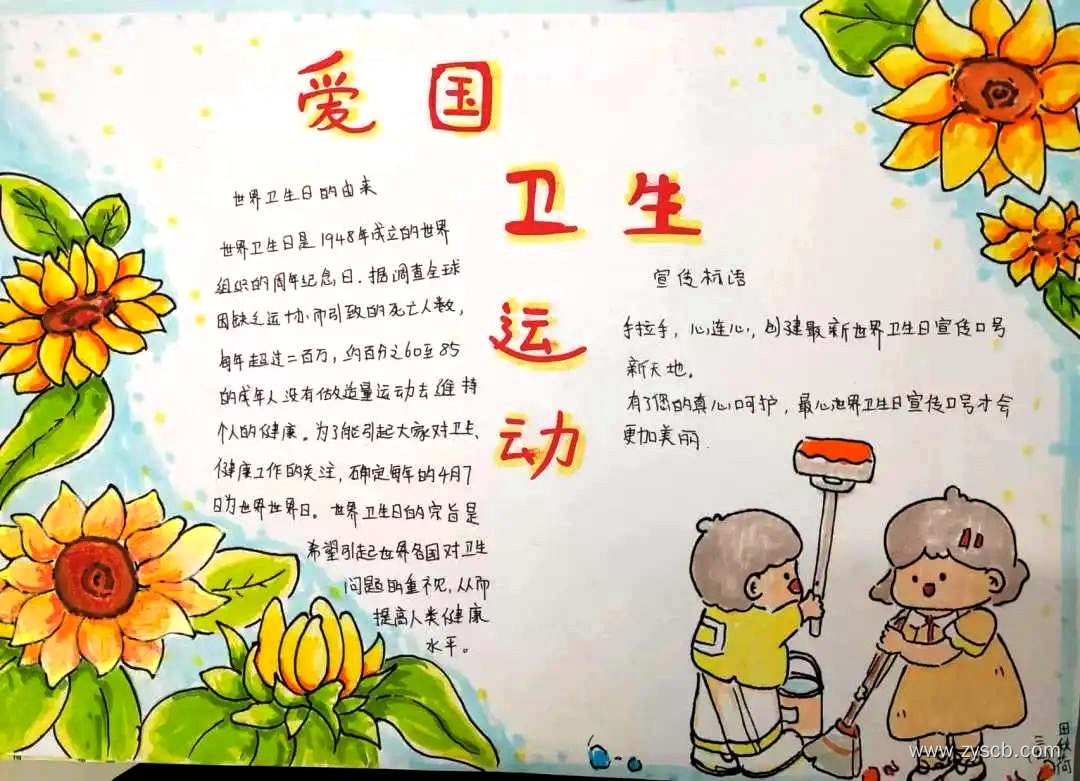 爱国
卫生
运
动
世界卫生日的由来
世界卫生日是1948年成立的世界
组织的周年纪念日.据调查全球
因缺乏运动而引致的死亡人数,
每年超过二百万,约百分之60至85
的成年人没有做造量运动去维持
个人的健康。为了能引起大家对卫生、
健康工作的关注,确定每年的4月7
日为世界世界日。世界卫生日的宗旨是
希望引起世界各国对卫生
问题的重视,从而
提高人类健康
水平。
宣传标语
手拉手,心连心,创建最新世界卫生日宣传口号
新天地。
有了您的真心呵护,最心世界卫生日宣传口号才会
更加美丽.
www.zyscb.com